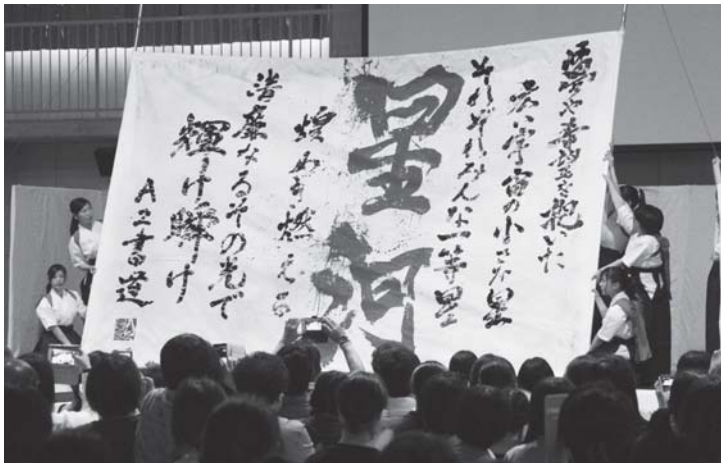 夢や希望を抱いた
広い宇宙の小さな星
それぞれみんな一等星
星河
煌めき燃える
清廉なるその光で
輝け瞬け
書道